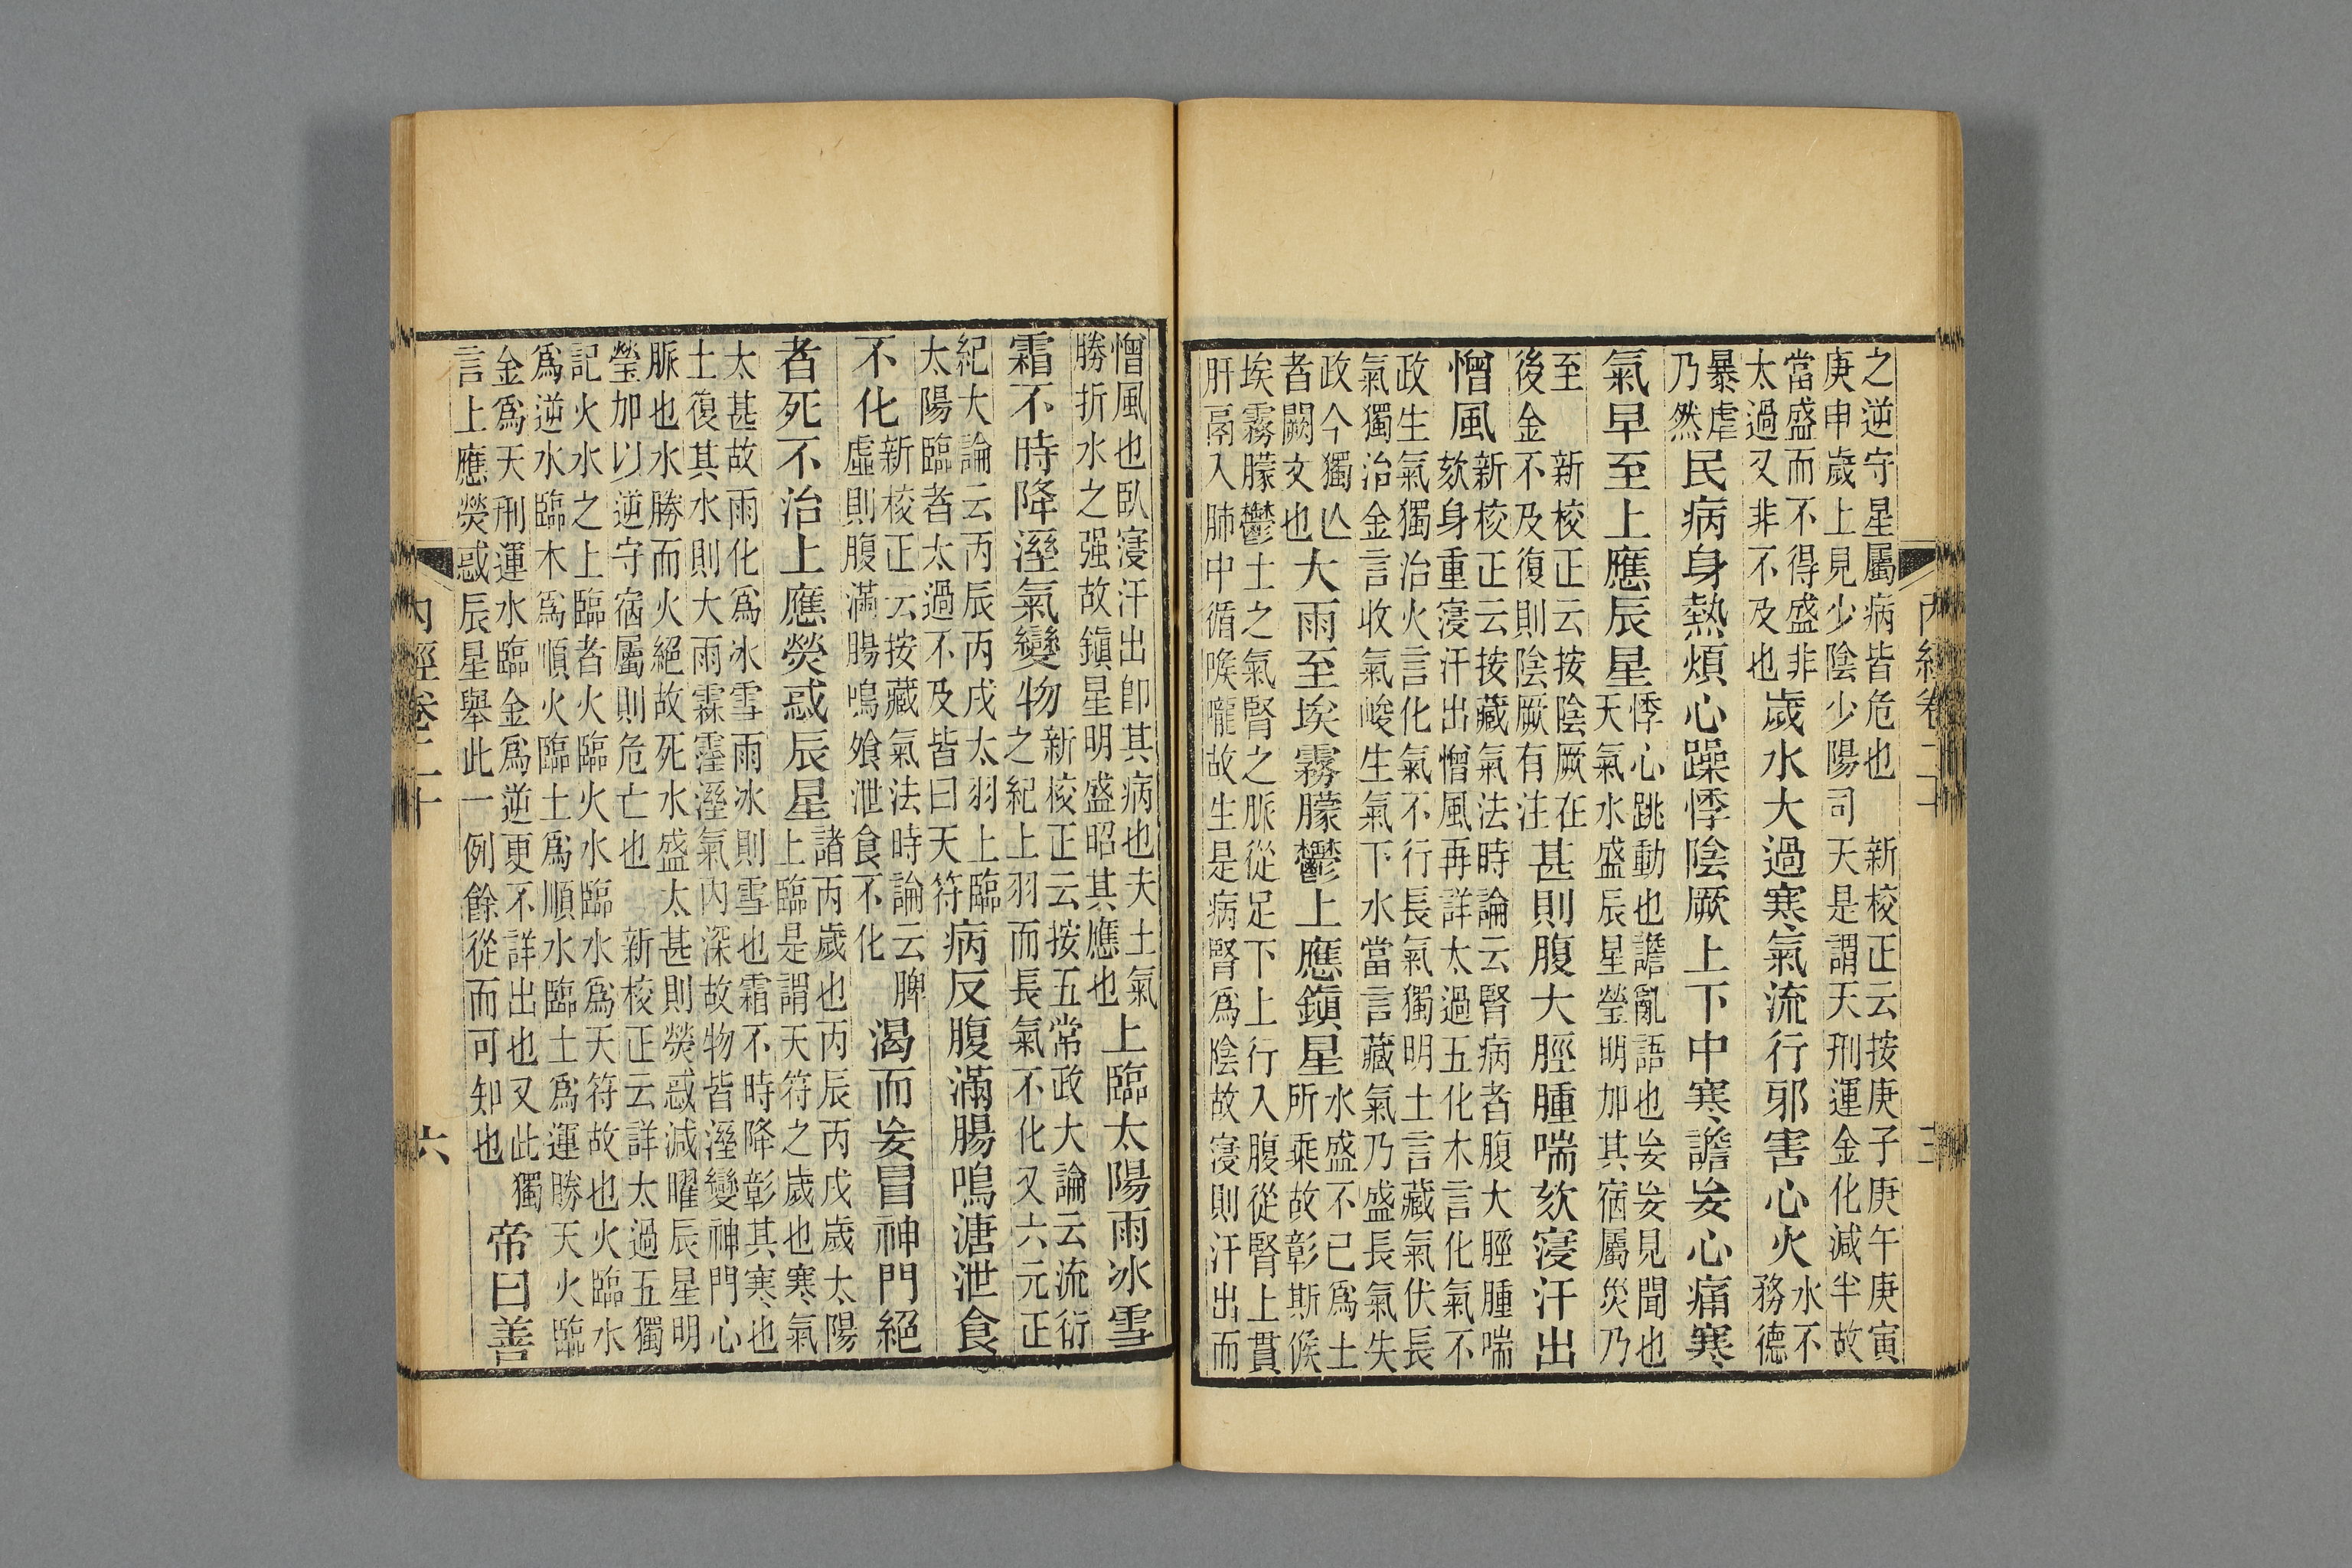 內經卷二十
三
之逆守星屬病皆危也　新校正云按庚子庚午庚寅
庚申歲上見少陰少陽司天是謂天刑運金化減半故
當盛而不得盛非
太過又非不及也
歲水大過寒氣流行邪害心火
水不
務德
暴虐
乃然
民病身熱煩心躁悸陰厥上下中寒譫妄心痛寒
氣早至上應辰星
悸心跳動也譫亂語也妄妄見聞也
天氣水盛辰星瑩明加其宿屬災乃
至　新校正云按陰厥在
後金不及復則陰厥有注
甚則腹大脛腫喘欬寖汗出
憎風
新校正云按藏氣法時論云腎病者腹大脛腫喘
欬身重寖汗出憎風再詳太過五化木言化氣不
政生氣獨治火言化氣不行長氣獨明土言藏氣伏長
氣獨治金言收氣峻生氣下水當言藏氣乃盛長氣失
政今獨亾
者闕文也
大雨至埃霧朦鬱上應鎭星
水盛不已爲土
所乘故彰斯候
埃霧朦鬱土之氣腎之脈從足下上行入腹從腎上貫
肝鬲入肺中循喉嚨故生是病腎爲陰故寖則汗出而
憎風也臥寖汗出卽其病也夫土氣
勝折水之强故鎭星明盛昭其應也
上臨太陽雨冰雪
霜不時降溼氣變物
新校正云按五常政大論云流衍
之紀上羽而長氣不化又六元正
紀大論云丙辰丙戌太羽上臨
太陽臨者太過不及皆曰天符
病反腹滿腸鳴溏泄食
不化
新校正云按藏氣法時論云脾
虛則腹滿腸鳴飧泄食不化
渴而妄冒神門絕
者死不治上應熒惑辰星
諸丙歲也丙辰丙戌歲太陽
上臨是謂天符之歲也寒氣
太甚故雨化爲冰雪雨冰則雪也霜不時降彰其寒也
土復其水則大雨霖霪溼氣內深故物皆溼變神門心
脈也水勝而火絕故死水盛太甚則熒惑減曜辰星明
瑩加以逆守宿屬則危亡也　新校正云詳太過五獨
記火水之上臨者火臨火水臨水爲天符故也火臨水
爲逆水臨木爲順火臨土爲順水臨土爲運勝天火臨
金爲天刑運水臨金爲逆更不詳出也又此獨
言上應熒惑辰星舉此一例餘從而可知也
帝曰善
內經卷二十
六